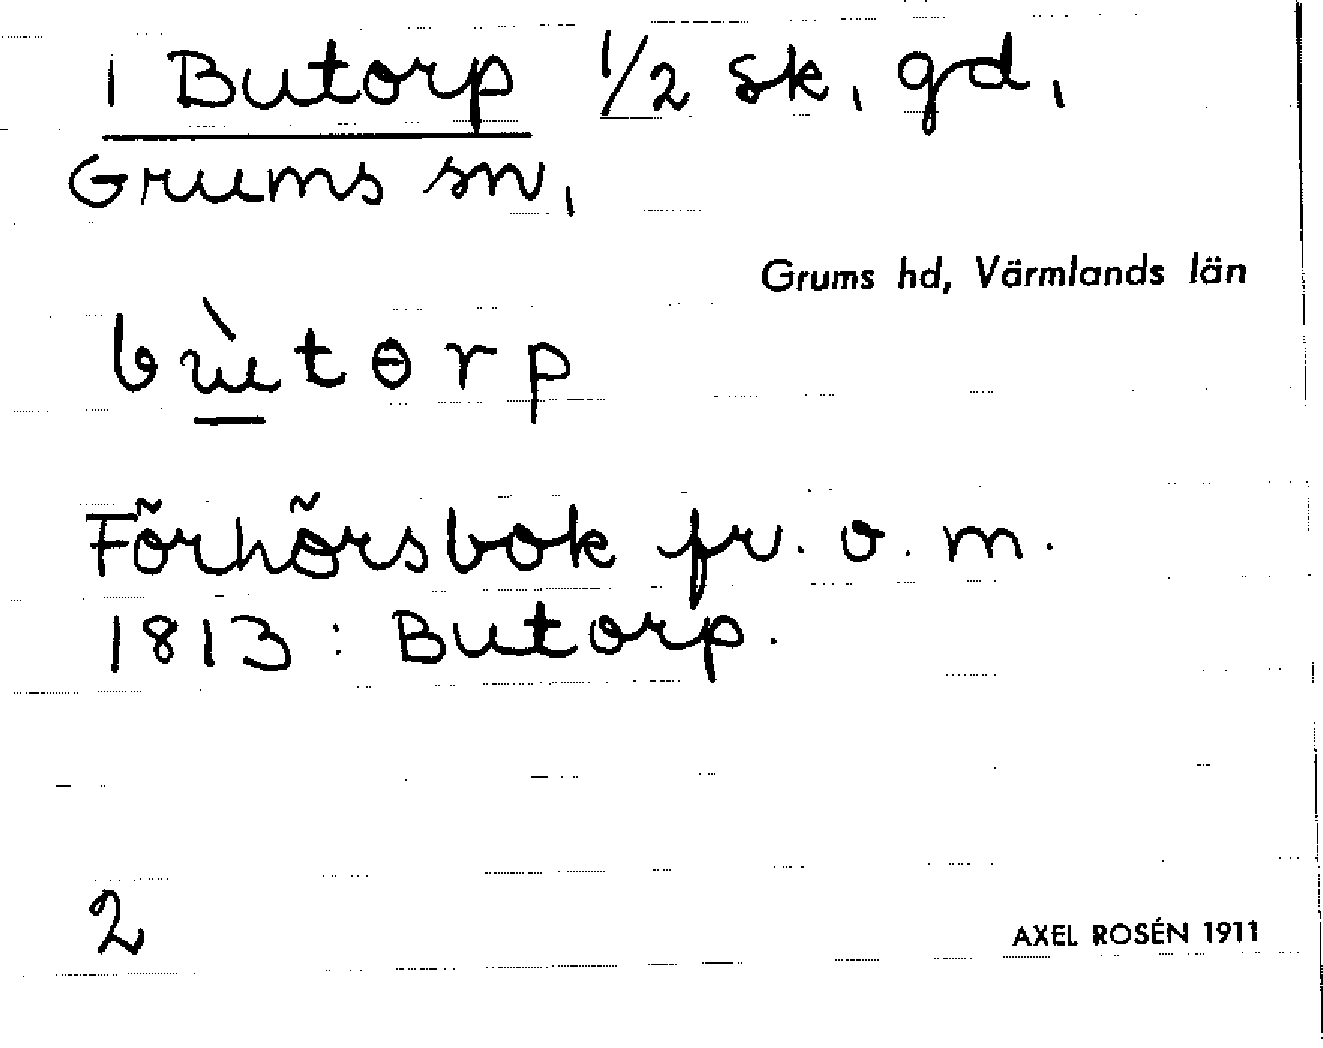 i Butorp 1/2 sk, gd,
Grums sn,
Grums hd, Värmlands län
bùtɵrp
Förhörsbok fr. o. m.
1813: Butorp.
2
AXEL ROSÉN 1911